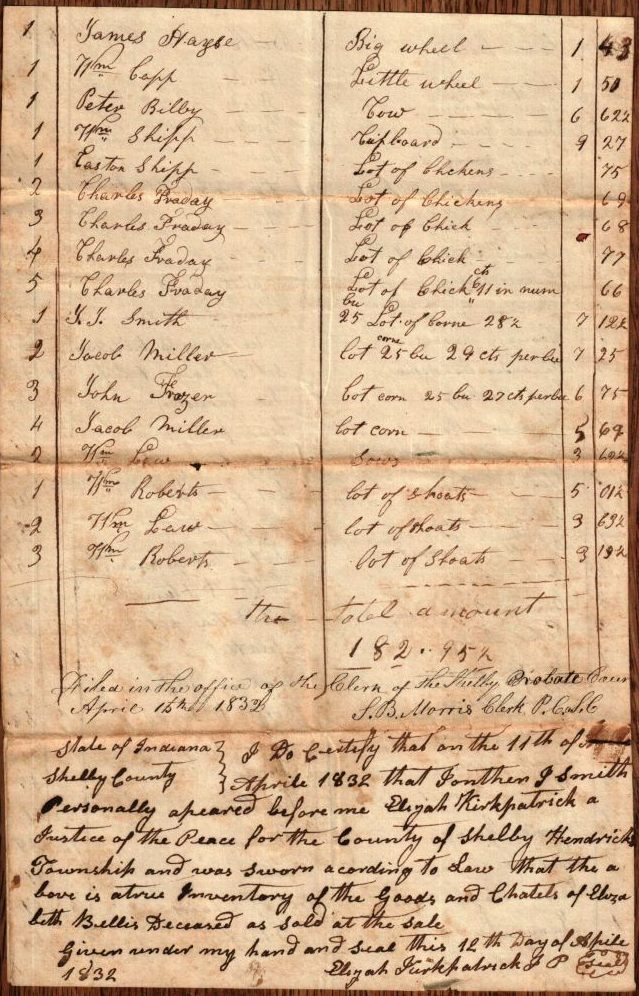 1 James Hayse Big wheel 1 43
1 Wm Capp Little wheel 1 50
1 Peter Bilby Cow 6 62½
1 Wm Shipp Cupboard 9 27
1 Easton Shipp Lot of Chckens 75
2 Charles Fraday Lot of Chickens 69
3 Charles Fraday Lot of Chick 68
4 Charles Fraday Lot of Chick 77
5 Charles Fraday Lot of Chick 11 in num 66
1 J. J. Smith 25 bu Lot of Corne 28½ cts 7 12½
2 Jacob Miller lot corne 25 bu 29 cts per bu 7 25
3 John Frazer Lot corn 25 bu 27 cts per bu 6 75
4 Jacob Miller lot corn 5 69
2 Wm Law Sows 3 69½
1 Wm Roberts lot of shoats 5 01½
2 Wm Law lot of shoats 3 63½
3 Wm Roberts lot of Shoats 3 19½
the total amount
182..95½
Filed in the office of the Clerk of the Shelby Probate Cour
April 12th 1832 S. B. Morris Clerk P. C. S. C
State of Indiana } I Do Certify that on the 11th of
Shelby County } Aprile 1832 that Jonthen J Smith
Personally apeared before me Elizah Kirkpatrick a
Justice of the Peace for the County of Shelby Hendricks
Township and was sworn acording to Law that the a
bove is a true Inventory of the Goods and Chatels of Eliza
beth Bellis Deceased as sold at the sale
Given under my hand and seal this 12th Day of Aprile
1832 Elizah Kirkpatrick J P Seal